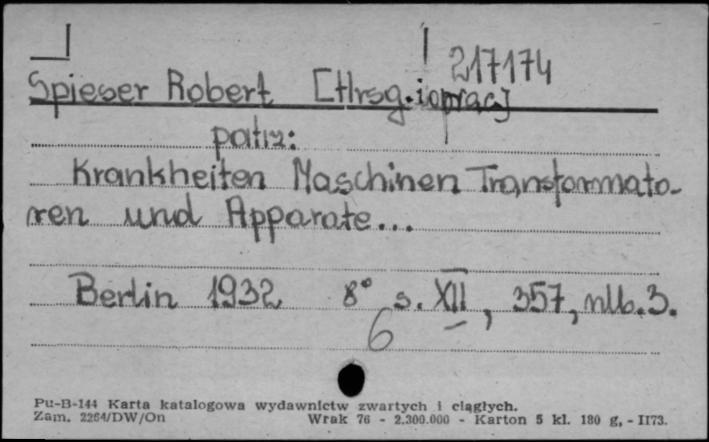 217174
Spieser Robert [Hrsg. i oprac]
patrz:
Krankheiten Maschinen Transformato-
ren und Apparate...
Berlin 1932 8° s. XII, 357, nlb. 3.
6
Pu-B-144 Karta katalogowa wydawnictw zwartych i ciągłych.
Zam. 2264/DW/On Wrak 76 - 2.300.000 - Karton 5 kl. 180 g, - II73.